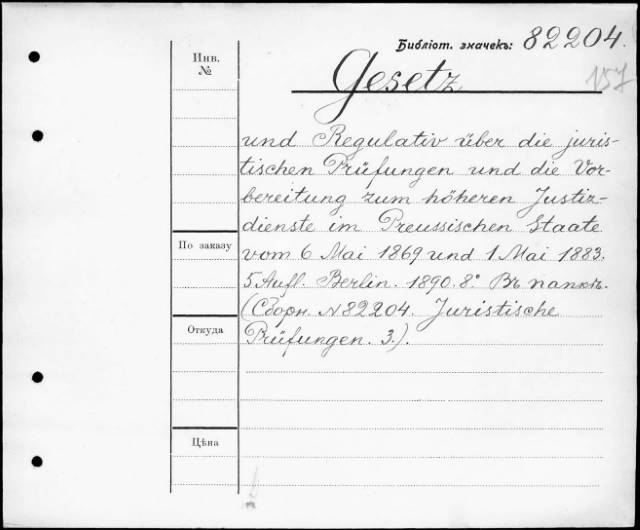 Библіот. значекъ: 82204.
157
Gesetz
Инв.
№
und Regulativ über die juris-
tischen Prüfungen und die Vor-
bereitung zum höheren Justiz-
dienste im Preussischen Staate
По заказу
vom 6 Mai 1869 und 1 Mai 1883.
5 Aufl. Berlin. 1890. 8.° Въ папкѣ.
(Сборн. N 82204. Juristische
Откуда
Prüfungen. 3.).
Цѣна